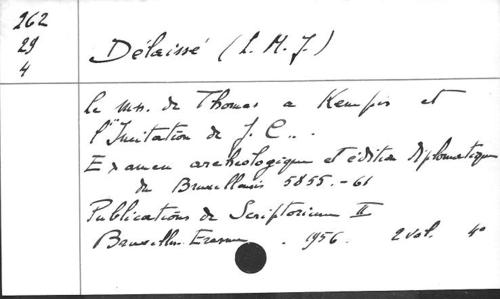 262
29
4
Délaissé (L. M. J.)
Le mss. de Thomas a Kempis et
l'Imitation de J. C...
Examen archeologique et édition diplomatique
du Bruxellensis 5855.-61
Publications de Scriptorium II
Bruxelles. Erasme . 1956. 2 vol. 4o